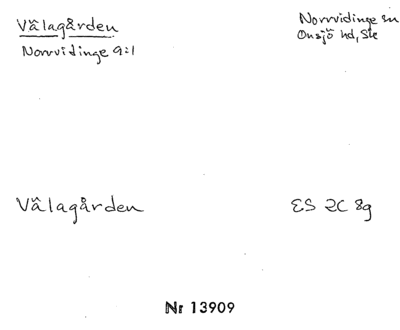 Välagården
Norrvidinge 9:1
Norrvidinge sn
Onsjö hd, Sk
Välagården
ES 2C 8g
Nr 13909